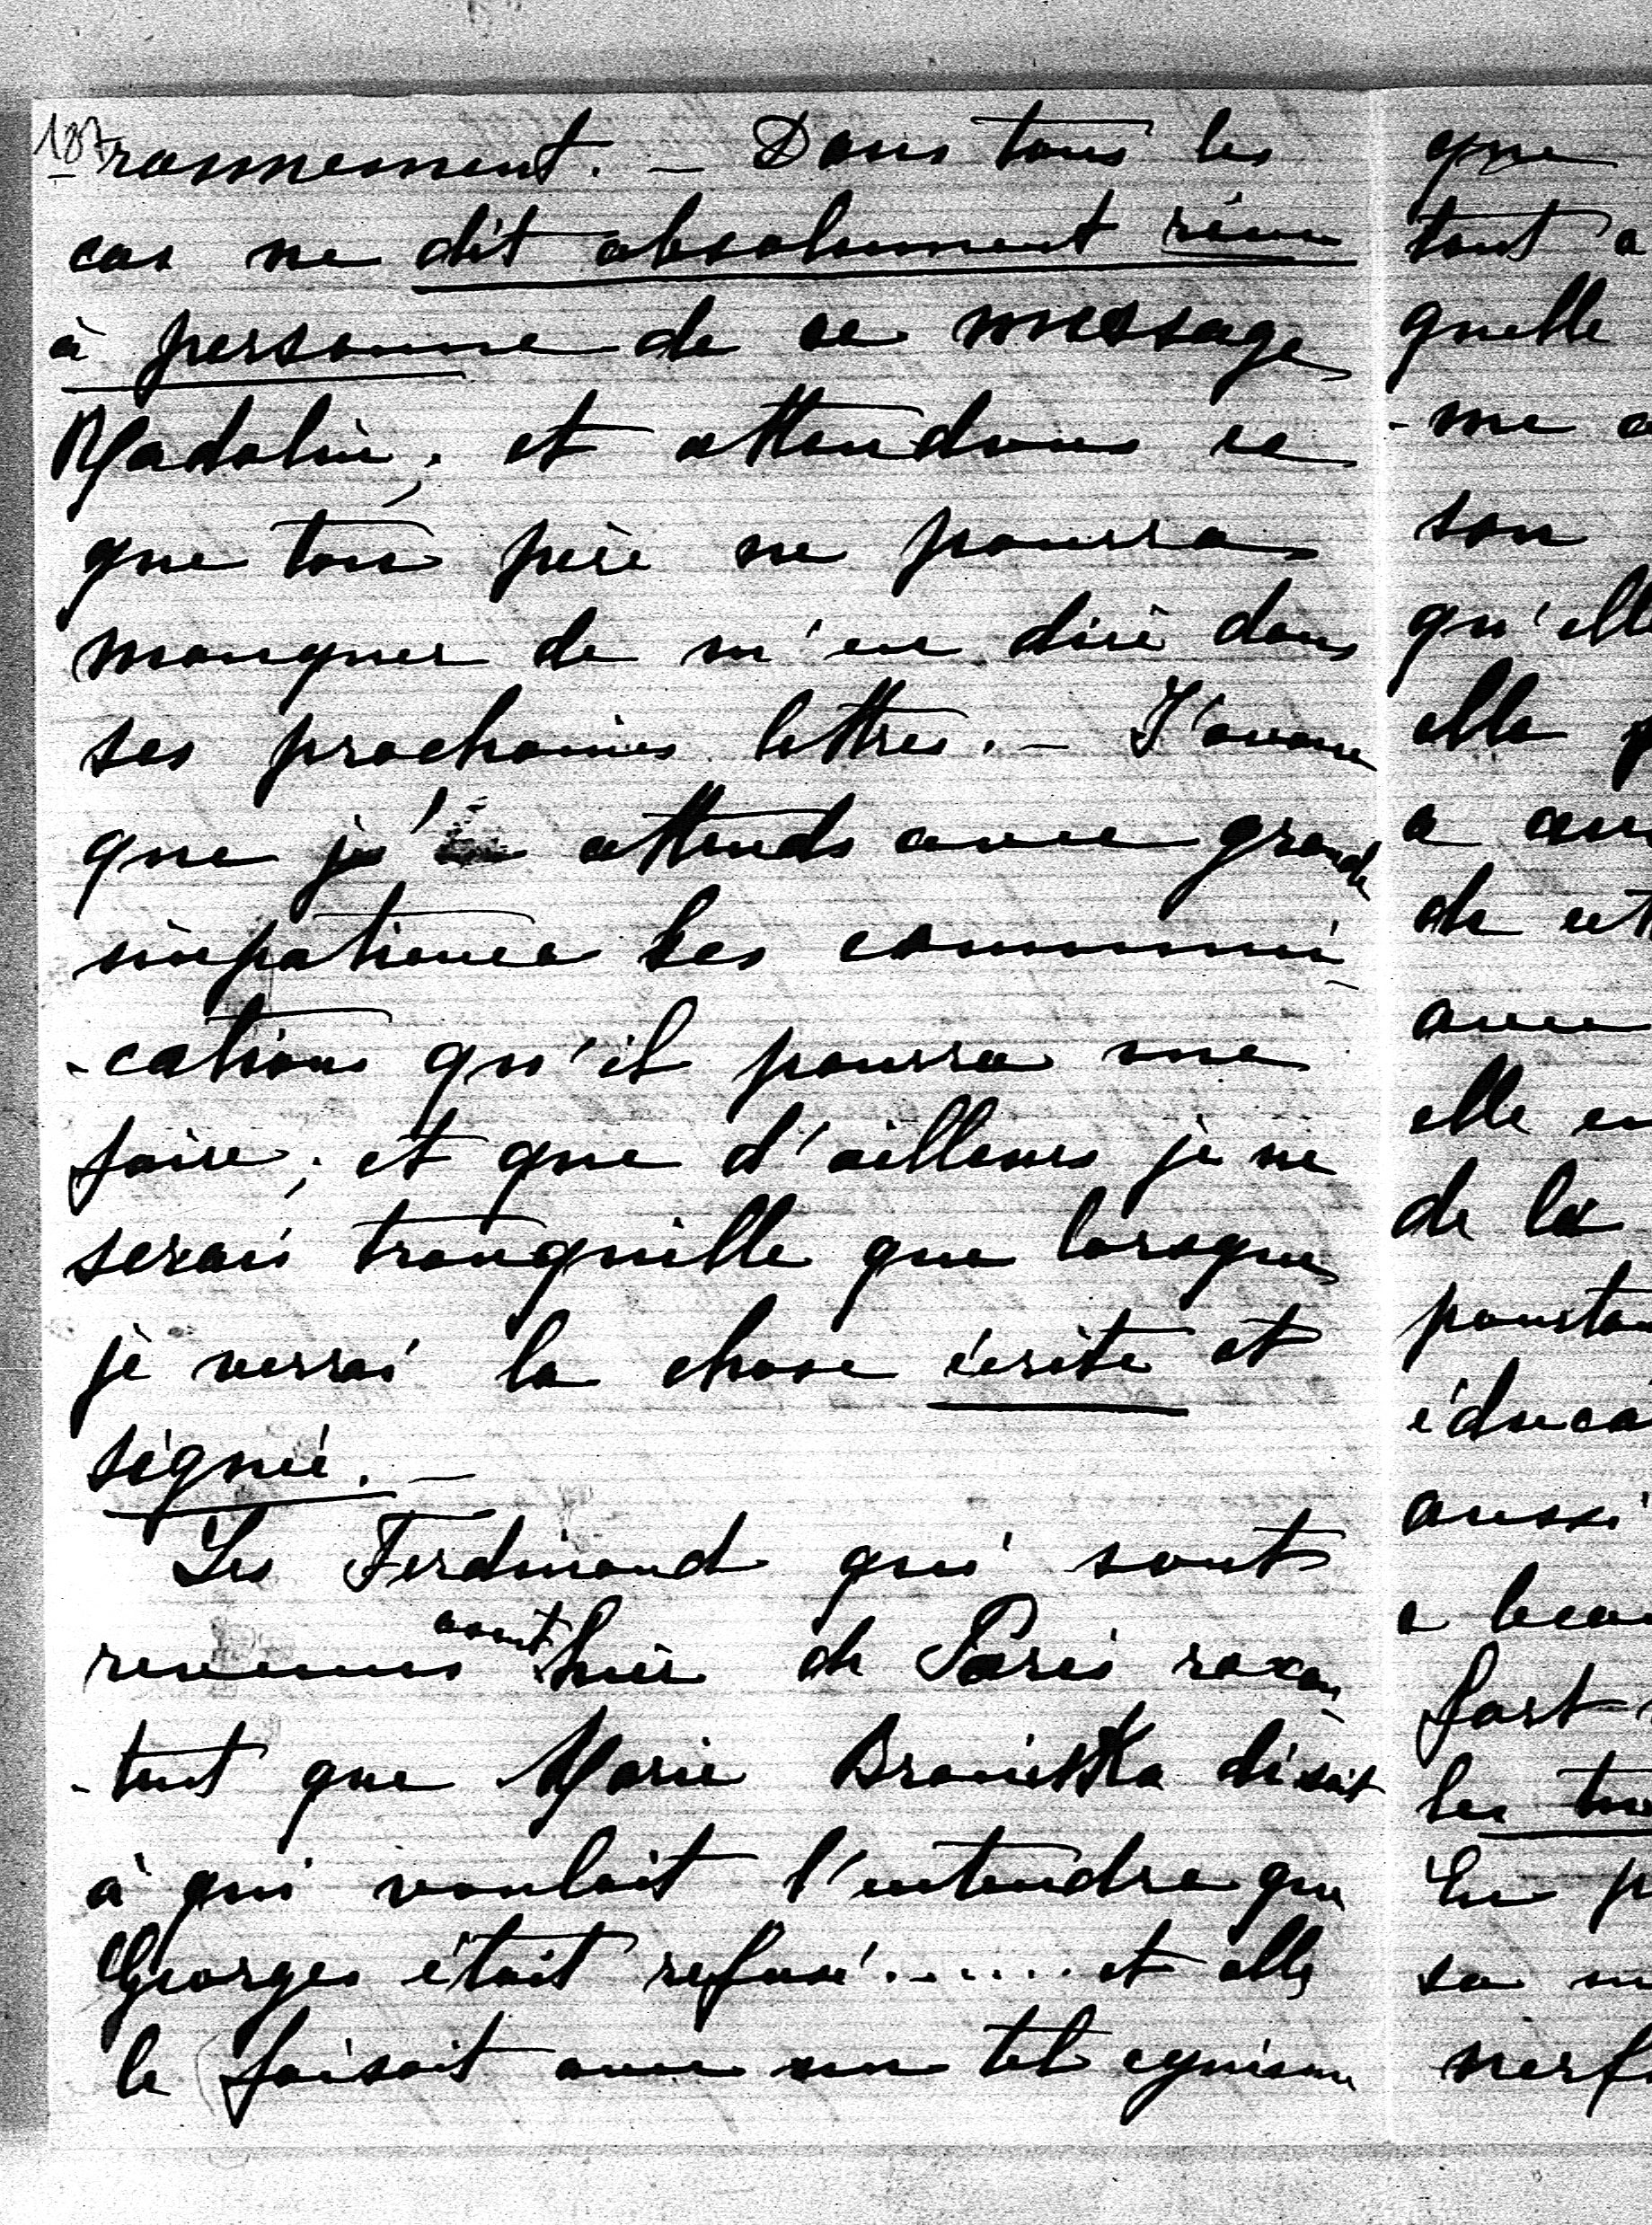 187
ronnement. — Dans tous les
cas ne dit absolument rien
à personne de ce message
Madolin, et attendons ce
que ton père ne pourra
manquer de m'en dire dans
ses prochaines lettres. — J'avoue
que j' attends avec grande
impatience les communi-
-cations qu'il pourra me
faire; et que d'ailleurs je ne
serai tranquille que lorsque
je verrai la chose écrite et
signée. —
Les Ferdinand qui sont
revenus avant hier de Paris racon-
-tent que Marie Braniska disait
à qui voulait l'entendre que
Georges était refusé....... et elle
le faisait avec un tel cynisme
que
tout a
quelle
-me a
son
qu'elle
elle p
a au
de cet
avec
elle en
de la
pourta
éduca
aussi
a beau
fort
les tr
En p
sa m
nerf